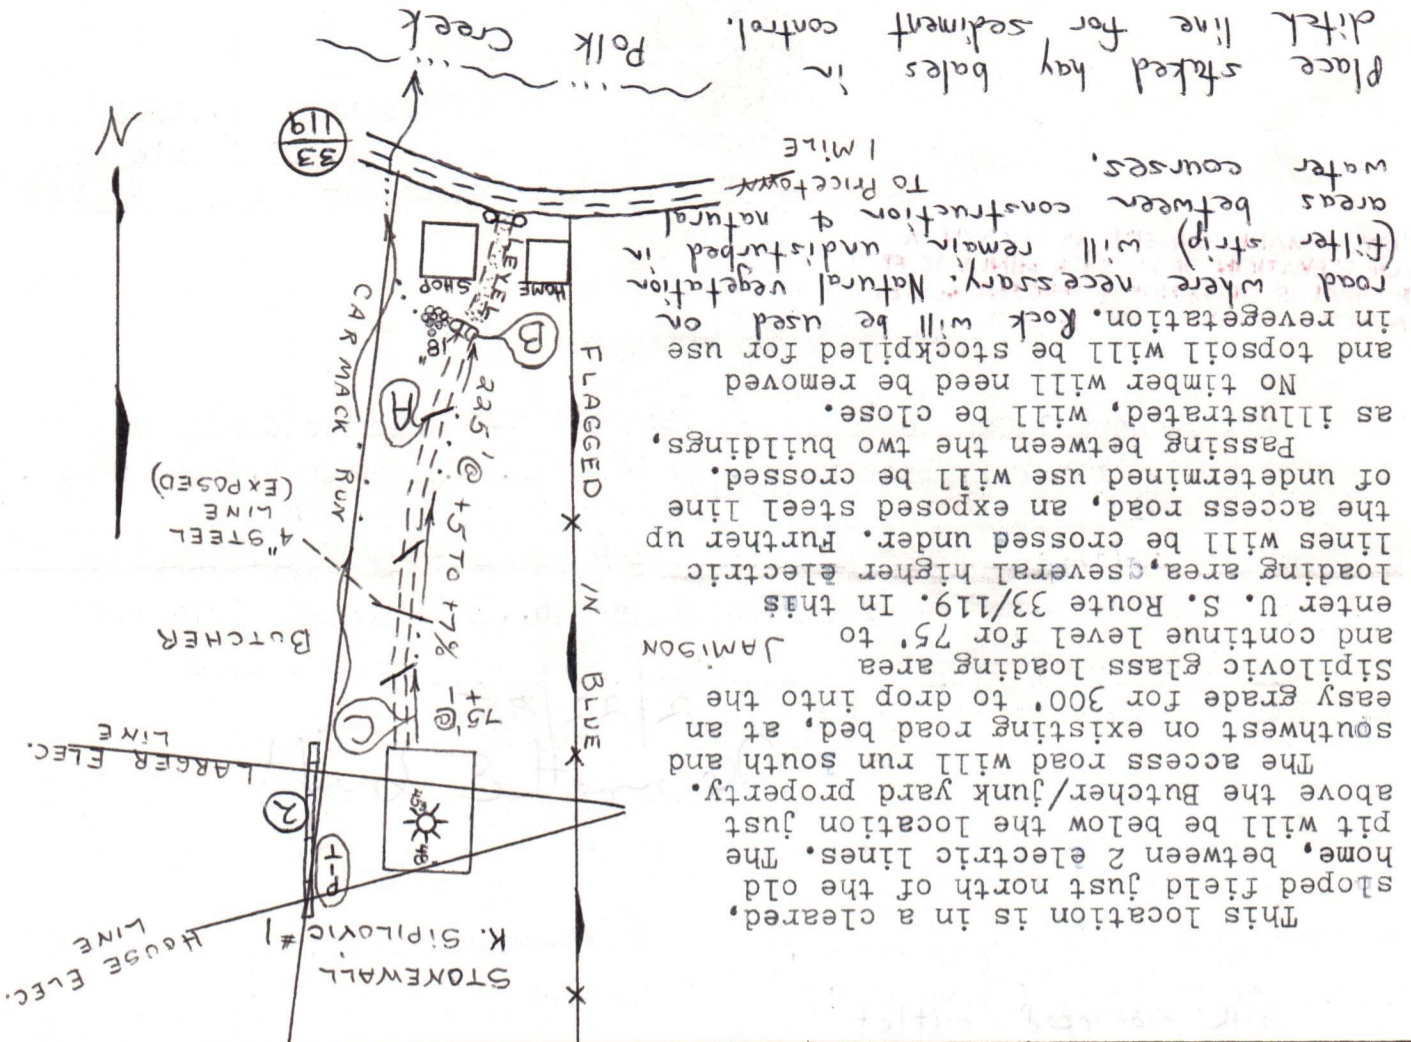 This location is in a cleared,
sloped field just north of the old
home, between 2 electric lines. The
pit will be below the location just
above the Butcher/junk yard property.
The access road will run south and
southwest on existing road bed, at an
easy grade for 300' to drop into the
Sipilovic glass loading area
and continue level for 75' to
enter U. S. Route 33/119. In this
loading area, several higher electric
lines will be crossed under. Further up
the access road, an exposed steel line
of undetermined use will be crossed.
Passing between the two buildings,
as illustrated, will be close.
No timber will need be removed
and topsoil will be stockpiled for use
in revegetation. Rock will be used on
road where necessary. Natural vegetation
(filter strip) will remain undisturbed in
areas between construction & natural
water courses.
Place staked hay bales in
ditch line for sediment control.
STONEWALL
K. SIPILOVIC #1
HOUSE ELEC.
LINE
T-P
2
48"
LARGER ELEC.
LINE
75' @
+-
C
BLUE
JAMISON
BUTCHER
IN
4" STEEL
LINE
(EXPOSED)
225' @ +5 TO +7%
FLAGGED
CARMACK RUN
A
B
18"
HOME
SHOP
LEVEL
TO PRICETOWN
1 MILE
33
119
N
Polk Creek